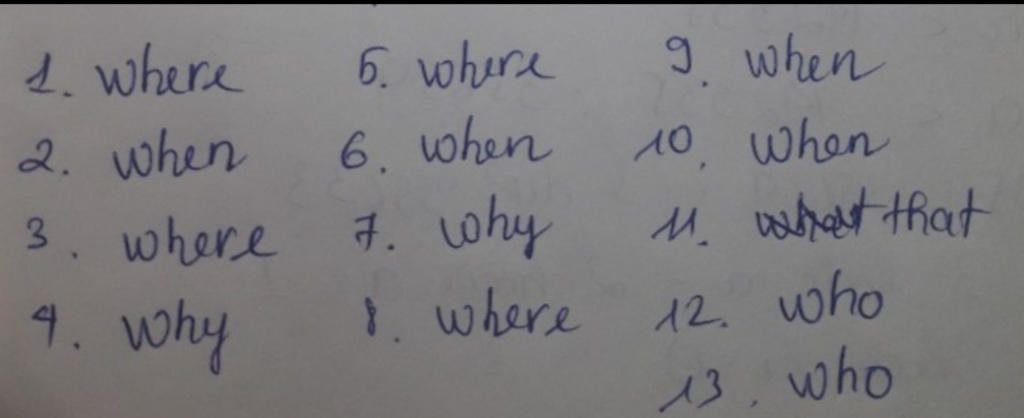 1. where
2. when
3. where
4. why
5. where
6. when
7. why
8. where
9. when
10. when
11. what that
12. who
13. who